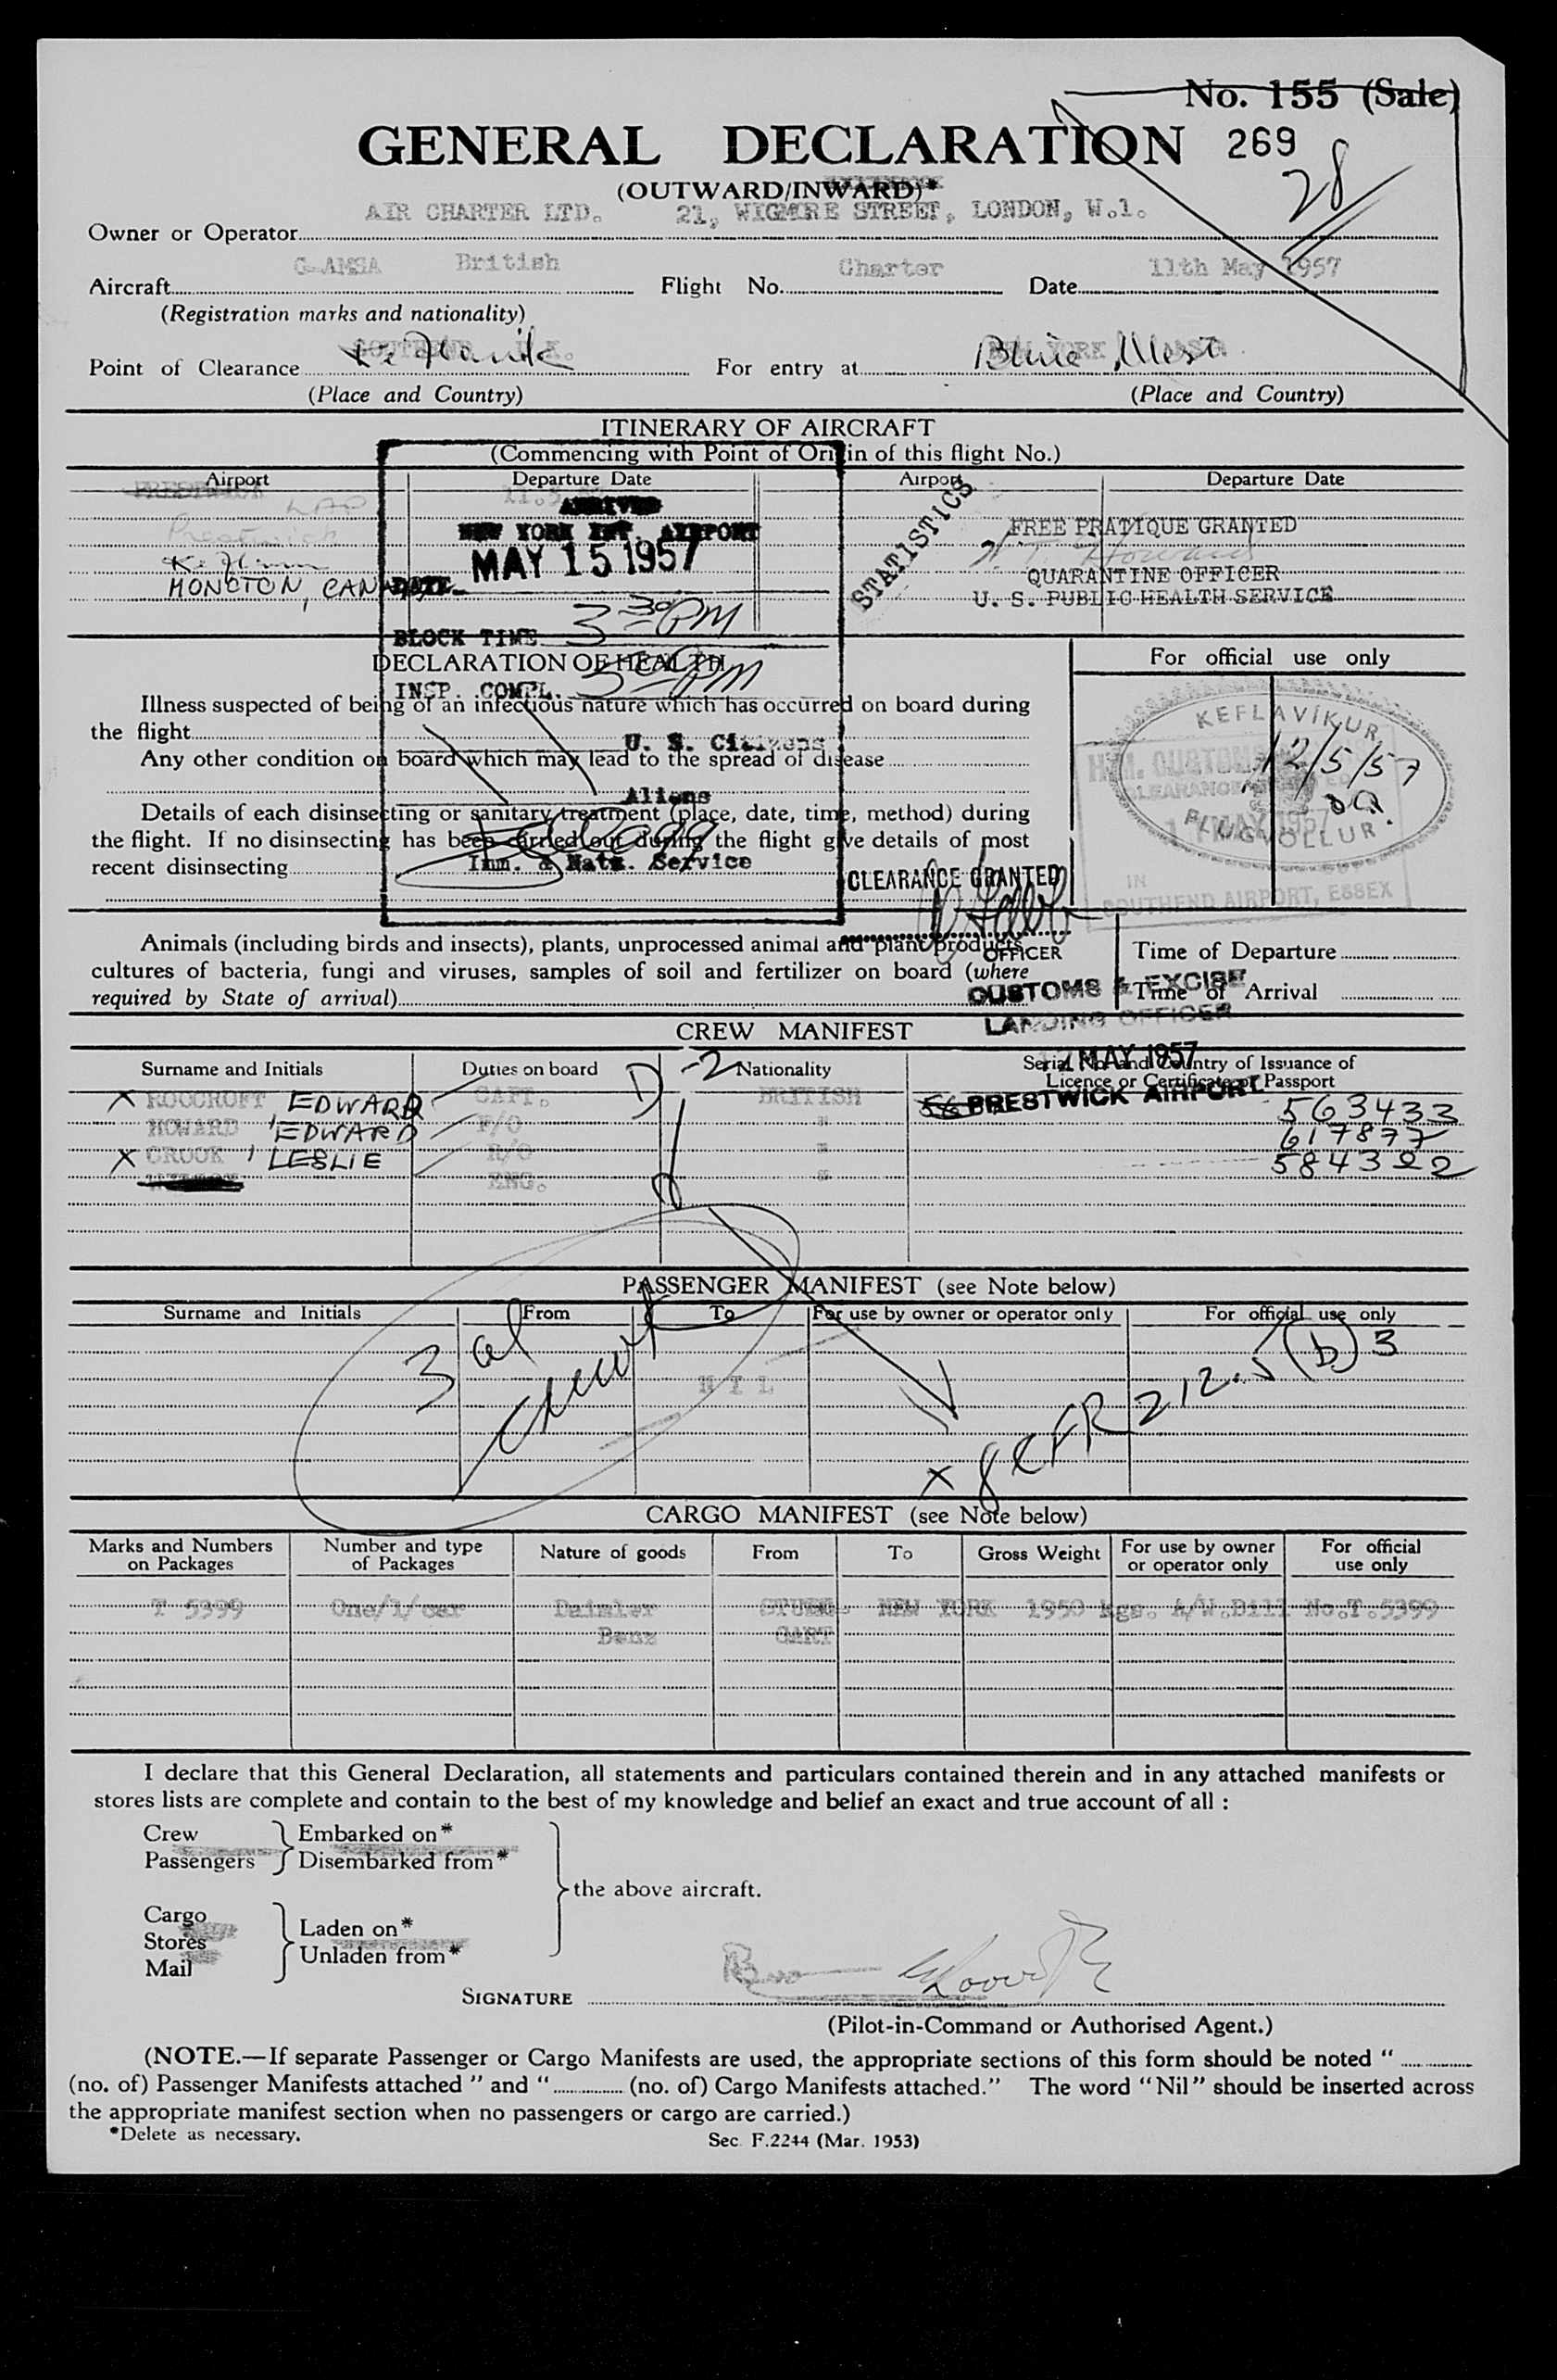 No. 155 (Sale)
GENERAL DECLARATION 269
28
(OUTWARD/INWARD)*
AIR CHARTER LTD. 21, WIGMORE STREET, LONDON, W.1.
Owner or Operator
G-AMSA British Charter 11th May 1957
Aircraft Flight No. Date
(Registration marks and nationality)
Keflavik Bluie West
Point of Clearance For entry at
(Place and Country) (Place and Country)
ITINERARY OF AIRCRAFT
(Commencing with Point of Origin of this flight No.)
Airport Departure Date Airport Departure Date
PRESTWICK 11.5.57
ARRIVED
Prestwick
NEW YORK INT. AIRPORT
MAY 15 1957
STATISTICS
FREE PRATIQUE GRANTED
Howard
QUARANTINE OFFICER
U. S. PUBLIC HEALTH SERVICE
MONCTON, CANADA
DATE
BLOCK TIME 3 30 PM
DECLARATION OF HEALTH
For official use only
INSP. COMPL. 5 PM
Illness suspected of being of an infectious nature which has occurred on board during
the flight
U. S. Citizens
Any other condition on board which may lead to the spread of disease
Aliens
Details of each disinsecting or sanitary treatment (place, date, time, method) during
the flight. If no disinsecting has been carried out during the flight give details of most
recent disinsecting
Imm. & Natz. Service
KEFLAVÍKUR
12/5/57
FLUGVÖLLUR
H.M. CUSTOMS
CLEARANCE
MAY 1957
IN
SOUTHEND AIRPORT, ESSEX
CLEARANCE GRANTED
OFFICER
Animals (including birds and insects), plants, unprocessed animal and plant products
cultures of bacteria, fungi and viruses, samples of soil and fertilizer on board (where
required by State of arrival)
Time of Departure
Time of Arrival
CUSTOMS & EXCISE
LANDING OFFICER
MAY 1957
PRESTWICK AIRPORT
CREW MANIFEST
Surname and Initials Duties on board Nationality Serial No. and Country of Issuance of
Licence or Certificate or Passport
D-2
X ROOCROFT, EDWARD CAPT. BRITISH 563433
HOWARD, EDWARD F/O " 617877
X CROOK, LESLIE R/O " 584322
ENG. "
PASSENGER MANIFEST (see Note below)
Surname and Initials From To For use by owner or operator only For official use only
3 al crew
N I L
X 8 CFR 212.5 (b) 3
CARGO MANIFEST (see Note below)
Marks and Numbers on Packages Number and type of Packages Nature of goods From To Gross Weight For use by owner or operator only For official use only
T 5399 One/1/car Daimler STUTT- NEW YORK 1950 kgs. A/W.Bill No.T.5399
Benz GART
I declare that this General Declaration, all statements and particulars contained therein and in any attached manifests or
stores lists are complete and contain to the best of my knowledge and belief an exact and true account of all :
Crew Embarked on*
Passengers Disembarked from*
the above aircraft.
Cargo
Stores Laden on*
Mail Unladen from*
SIGNATURE
(Pilot-in-Command or Authorised Agent.)
(NOTE.—If separate Passenger or Cargo Manifests are used, the appropriate sections of this form should be noted "
(no. of) Passenger Manifests attached " and " (no. of) Cargo Manifests attached." The word "Nil" should be inserted across
the appropriate manifest section when no passengers or cargo are carried.)
*Delete as necessary.
Sec. F.2244 (Mar. 1953)